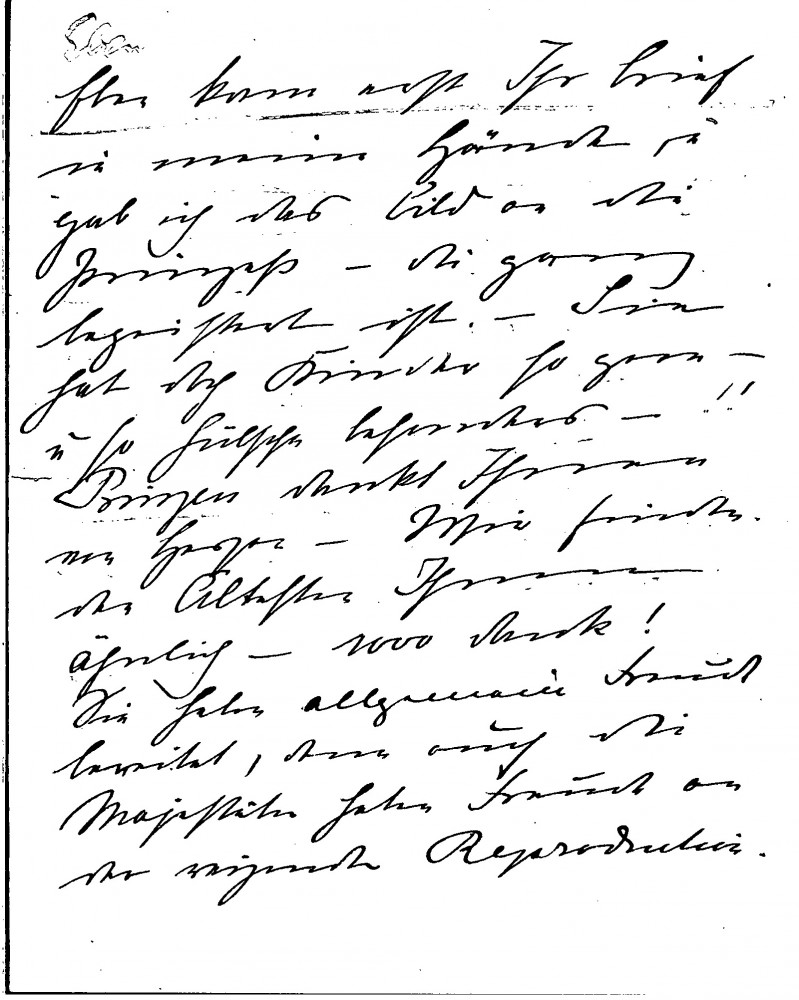 Eben
Eben kam erst Ihr Brief
in meine Hände, u
gab ich das Bild an die
Prinzeß – die ganz
begeistert ist. – Sie
hat doch Kinder so gern –
u so hübsche besonders – !!
Prinzeß dankt Ihnen
von Herzen – Wir finden
den Ältesten Ihnen
ähnlich – 1000 Dank!
Sie haben allgemein Freude
bereitet, denn auch die
Majestäten haben Freude an
der reizenden Reproduction.